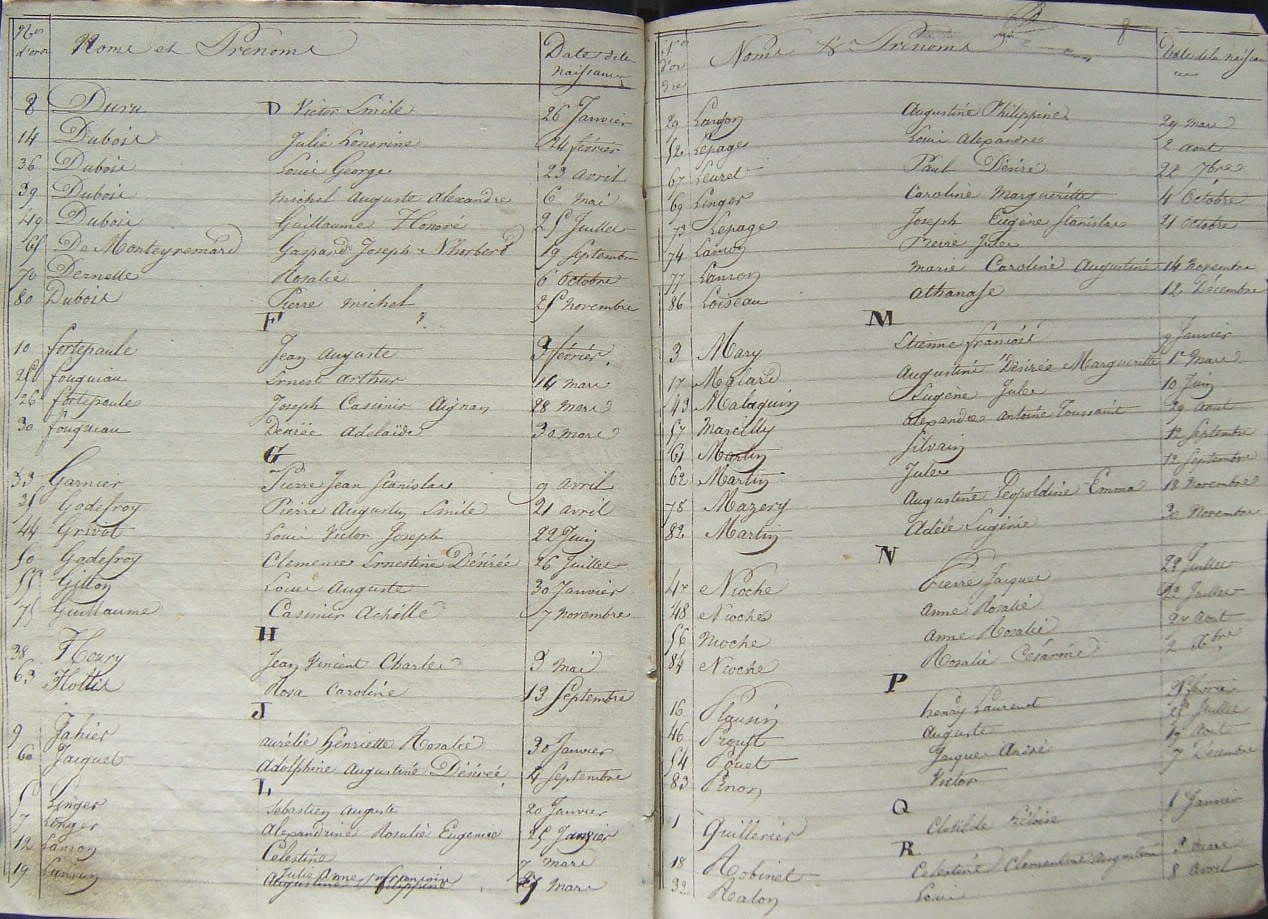 Nos d'ordre Noms et Prénoms Date de la naissance
D
8 Duru Victor Emile 26 Janvier
14 Dubois Julie henorine 24 février
36 Dubois Louis George 23 avril
39 Dubois michel Auguste Alexandre 6 mai
49 Dubois Guillaume Honoré 25 Juillet
64 De Monteyremard Gaspard Joseph 19 Septembre
70 Dernelle Rosalie 6 Octobre
80 Dubois Pierre michel 25 novembre
F
10 fortepaule Jean Auguste 3 février
fouquiau Ernest Arthur 14 mars
26 fortepaule Joseph Casimir Aignan 28 mars
30 fouquiau Désirée Adelaïde 30 mars
G
33 Garnier Pierre Jean Stanislas 9 avril
35 Godefroy Pierre Augustin Emile 21 avril
44 Grivot Louis Victor Joseph 22 Juin
50 Godefroy Clemence Ernestine Désirée 26 Juillet
55 Gillon Louis Auguste 30 Janvier
75 Guillaume Casimir Achille 7 novembre
H
38 Houry Jean Vincent Charles 3 mai
63 Hottis Rosa Caroline 13 Septembre
J
9 Jahier aurélie henriette Rosalie 30 Janvier
60 Jacquet Adolphine Augustine Désirée 4 Septembre
L
5 Linger Sebastien Auguste 20 Janvier
7 Linger Alexandrine Rosalie Eugenie 25 Janvier
12 Lanson Celestine 7 mars
19 Julie Anne
Augustine philippine mars
8
Nos d'ordre Noms & Prénoms Date de la naissance
29 Augustine Philippine 29 mars
52 Lepage Louis Alexandre 2 aout
67 Leuret Paul Désiré 22 7bre
69 Linger Caroline Margueritte 4 Octobre
73 Lepage Joseph Eugène Stanislas 21 Octobre
74 Lanson Pierre Jules
77 Lanson marie Caroline Augustine 14 novembre
86 Loiseau Athanase 12 Décembre
M
3 Mary Etienne françois 9 Janvier
17 Malard Augustine Désirée Marguerite 1er mars
43 Malaquin Eugène Jules 10 Juin
57 Marcilly Alexandre Antoine Toussaint 29 aout
61 Martin Silvain 12 Septembre
62 Martin Jules 12 Septembre
78 Mazery Augustine Léopoldine Emma 18 Novembre
82 Martin Adèle Eugénie 30 Novembre
N
47 Nioche Pierre Jacques 22 Juillet
48 Nioche Anne Rosalie 22 Juillet
56 Nioche Anne Rosalie 27 aout
84 Nioche Rosalie Césarine 2 Xbre
P
16 Plousin henry Laurent février
46 Proust Auguste Juillet
54 Pouet Jacques André 19 aout
83 Pinon Victor 7 Décembre
Q
1 Quillerier Clotilde héloise 1er Janvier
R
18 Robinet Celestine Clementine Augustine 3 mars
32 Raton Louis 8 avril